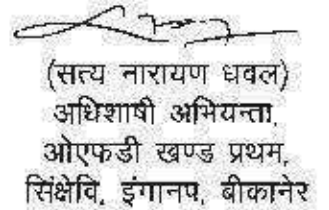 (सत्य नारायण धवल)
अधिशाषी अभियन्ता,
ओएफडी खण्ड प्रथम,
सिंक्षेवि, इंगानप, बीकानेर